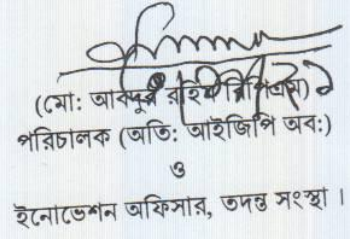 (মো: আবদুর রহিম বিপিএম)
পরিচালক (অতি: আইজিপি অব:)
ও
ইনোভেশন অফিসার, তদন্ত সংস্থা ।